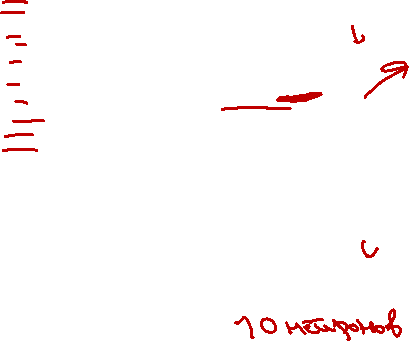 10 нейронов